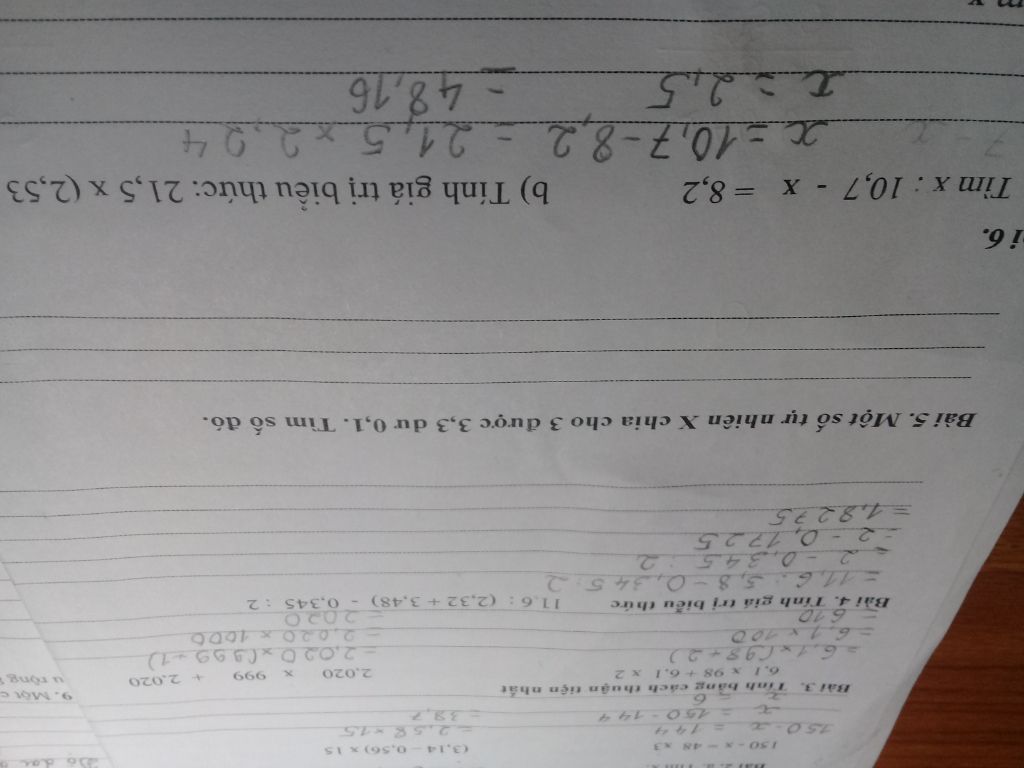 Bài 2. a. Tìm x:
150 - x = 48 x3
(3,14 – 0,56) x 15
150 - x = 144
= 2,58 x 15
x = 150 - 144
= 38,7
x = 6
Bài 3. Tính bằng cách thuận tiện nhất
6,1 x 98 + 6,1 x 2
2,020 x 999 + 2,020
= 6,1 x (98 + 2)
= 2,020 x (999 + 1)
= 6,1 x 100
= 2,020 x 1000
= 610
= 2020
Bài 4. Tính giá trị biểu thức 11,6 : (2,32 + 3,48) - 0,345 : 2
= 11,6 : 5,8 - 0,345 : 2
= 2 - 0,345 : 2
= 2 - 0,1725
= 1,8275
Bài 5. Một số tự nhiên X chia cho 3 được 3,3 dư 0,1. Tìm số đó.
i 6.
Tìm x : 10,7 - x = 8,2
b) Tính giá trị biểu thức: 21,5 x (2,53
x = 10,7 - 8,2
= 21,5 x 2,24
x = 2,5
= 48,16
9. Một
u rộng